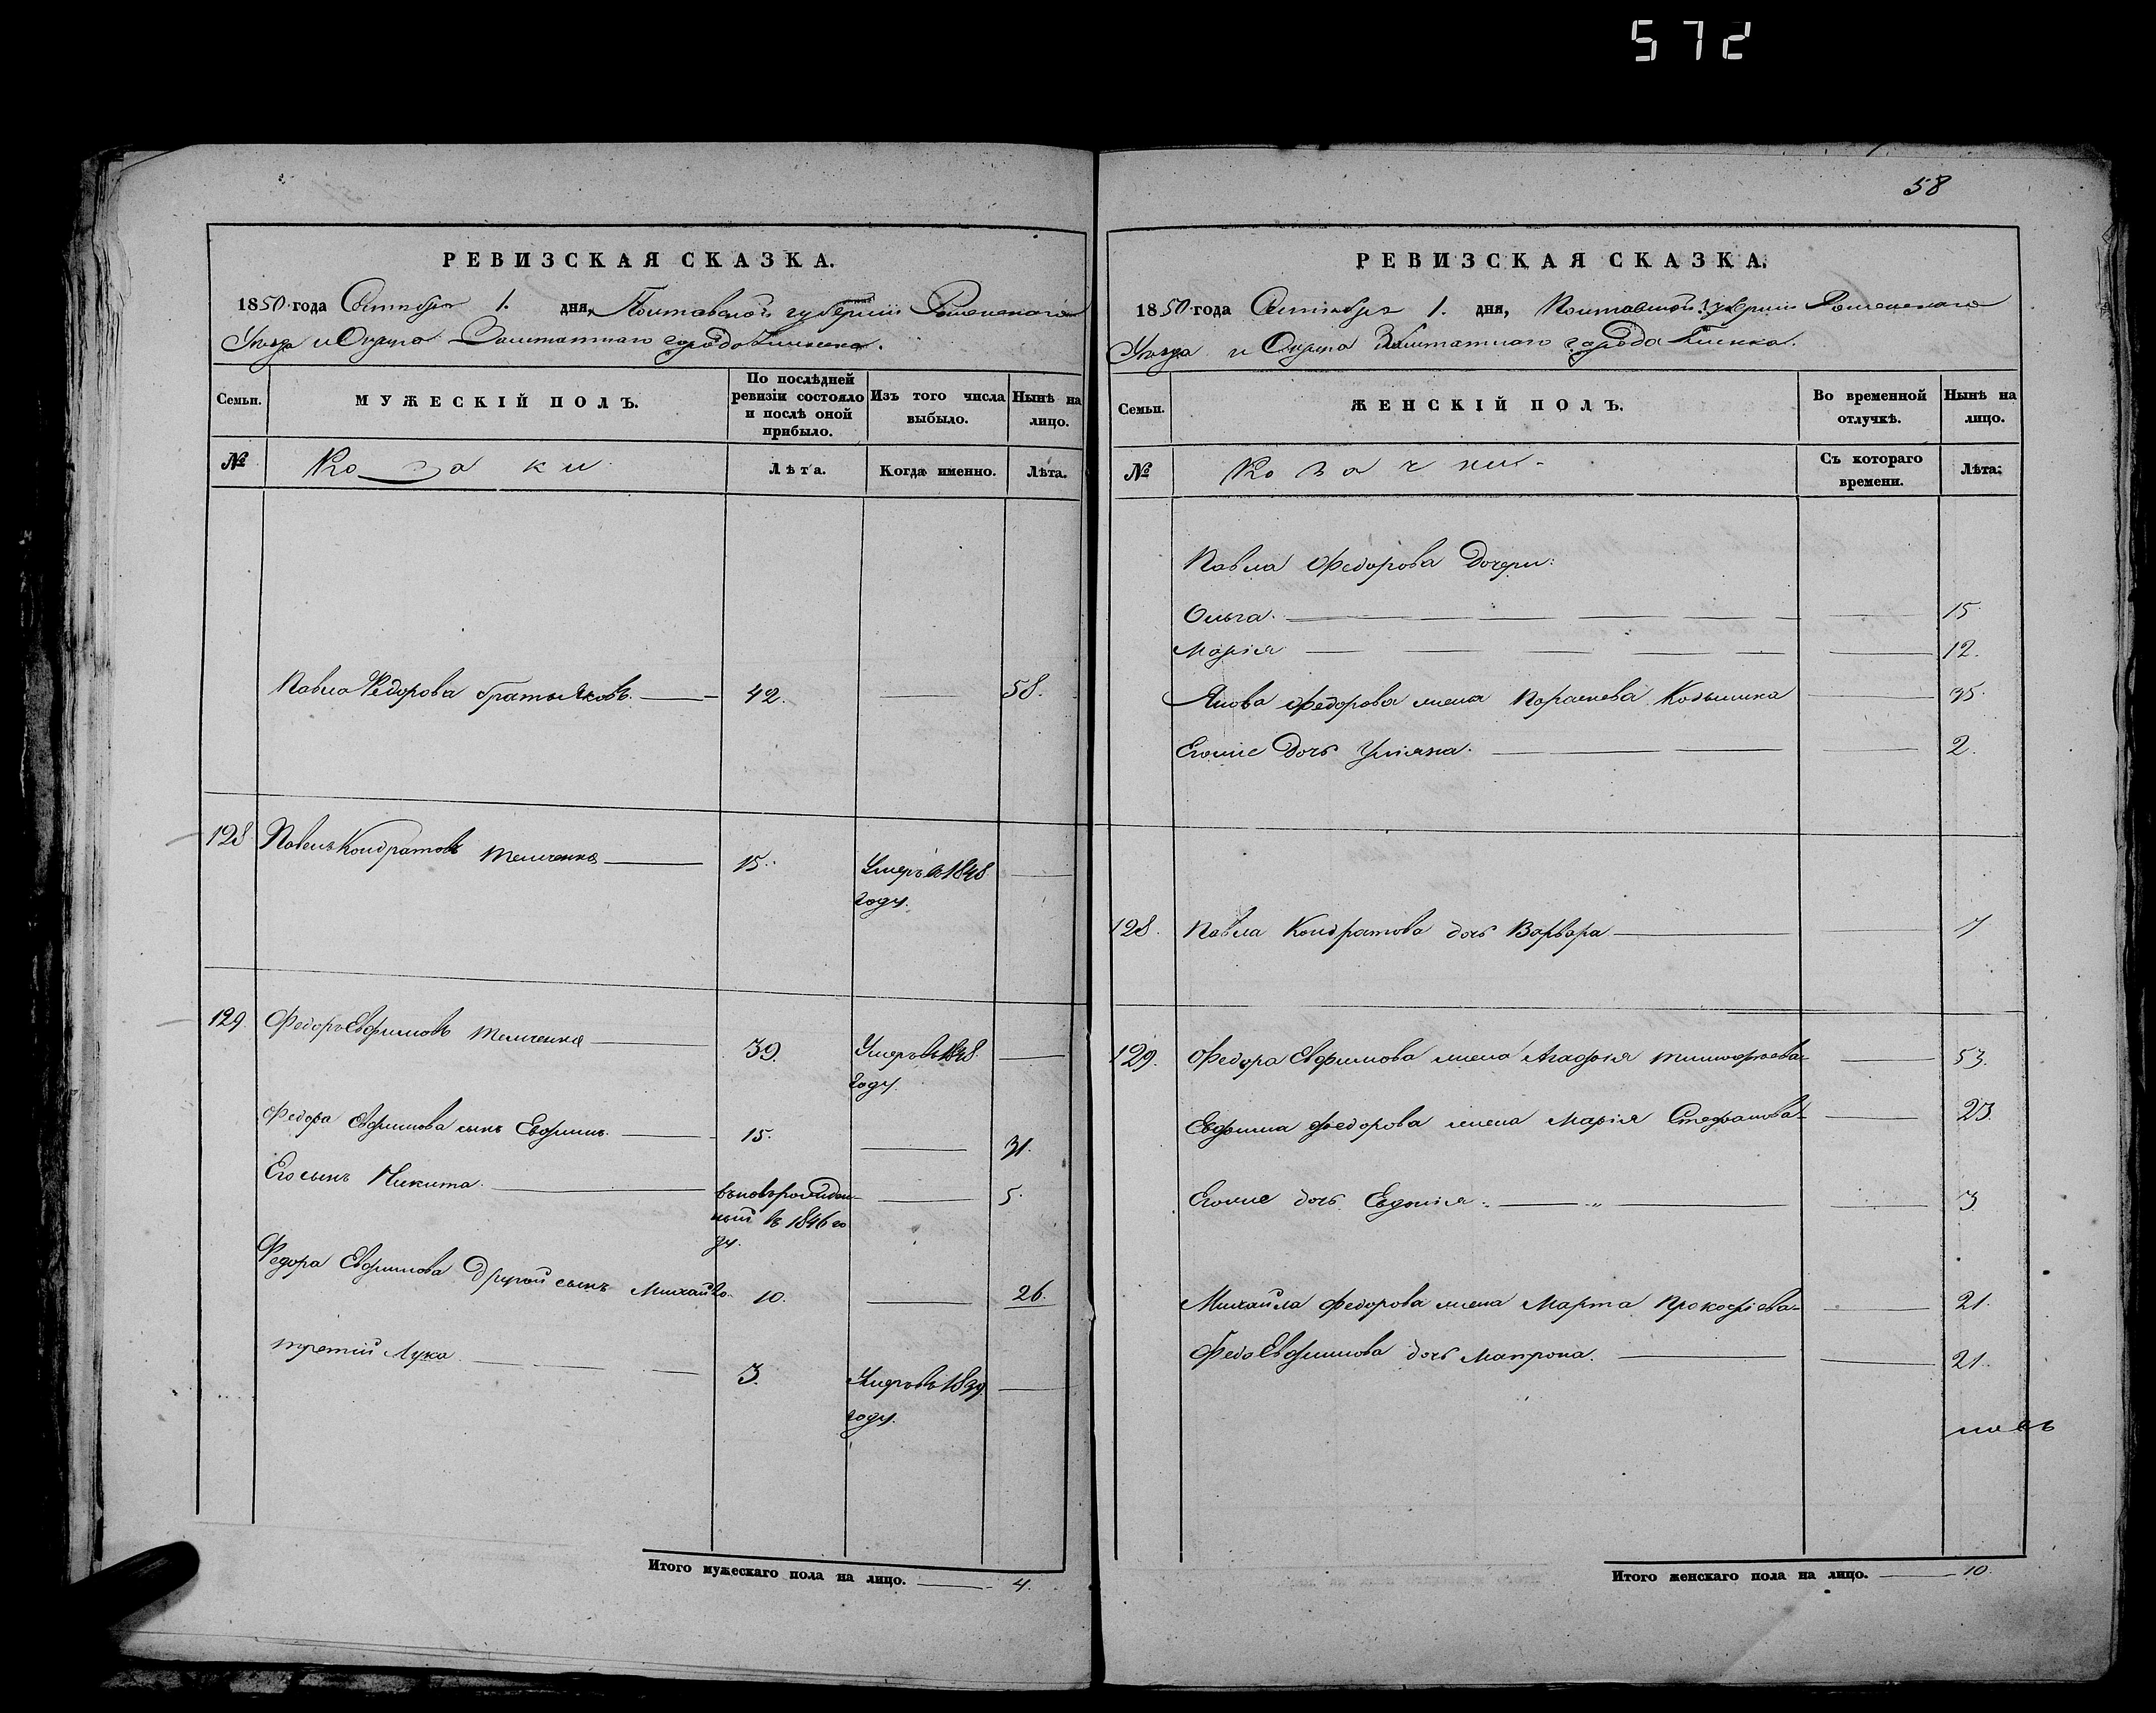 572
58
РЕВИЗСКАЯ СКАЗКА.
1850 года Сентября 1. дня, Полтавской губерніи Роменскаго
Уѣзда и Округа Заштатнаго города Глинска.
Семьи. МУЖЕСКІЙ ПОЛЪ. По послѣдней ревизіи состояло и послѣ оной прибыло. Изъ того числа выбыло. Нынѣ на лицо.
№ Козаки Лѣта. Когда именно. Лѣта.
Павла Федорова братъ Яковъ. 42. 58.
128 Павелъ Кондратовъ 15. Умеръ въ 1848
году.
129 Федоръ Евфимовъ 39. Умеръ въ 1848
году.
Федора Евфимова сынъ Евфимъ. 15. 31.
Его сынъ Никита. вновьрожден-
ный въ 1846 го
ду. 5.
Федора Евфимова другой сынъ Михайло 10. 26.
третій Лука 3. Умеръ въ 1839
году.
Итого мужескаго пола на лицо. 4.
РЕВИЗСКАЯ СКАЗКА.
1850 года Сентября 1. дня, Полтавской губерніи Роменскаго
Уѣзда и Округа Заштатнаго города Глинска.
Семьи. ЖЕНСКІЙ ПОЛЪ. Во временной отлучкѣ. Нынѣ на лицо.
№ Козачки Съ котораго времени. Лѣта.
Павла Федорова дочери:
Ольга. 15.
Марія 12.
Якова Федорова жена Параскева 35.
Егоже дочь Уліяна. 2.
128. Павла Кондратова дочь Варвара 7
129. Федора Евфимова жена Агафія Тимофеева 53.
Евфима Федорова жена Марія Стефанова 23.
Егоже дочь Евдокія. 3
Михайла Федорова жена Марта Прокофіева 21.
Федо Евфимова дочь Матрона. 21.
Итого женскаго пола на лицо. 10.